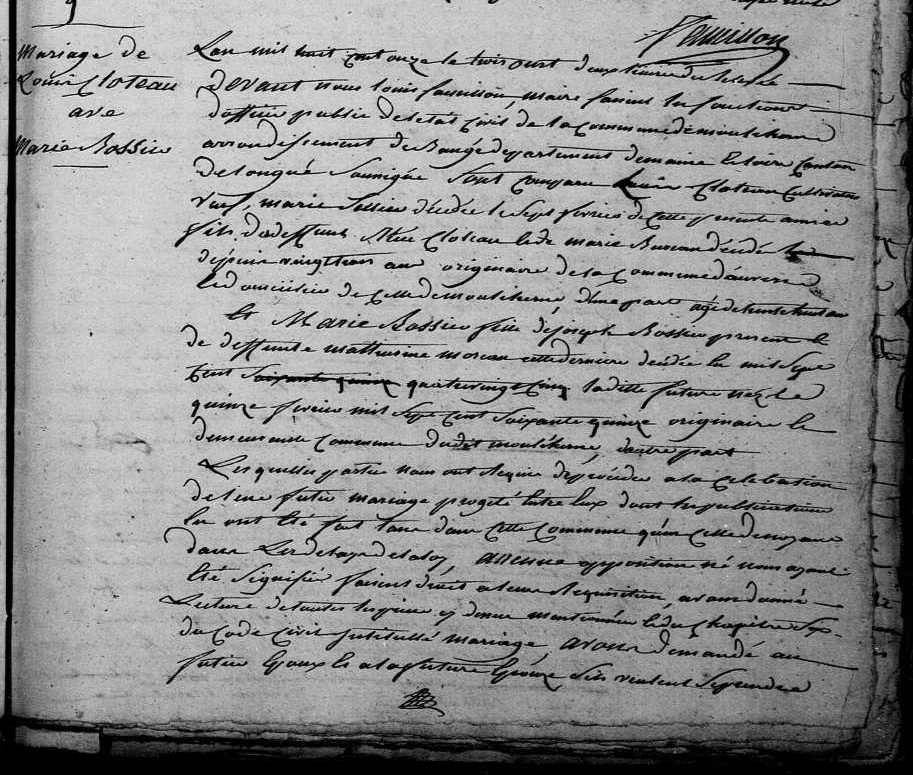 9
Mariage de
Louis Cloteau
ave
Marie Bossieu
Fauvillon
Lan mil huit cent onze le trois oust deux heure du
devant nous louis fauvillon, maire faisant les fonctions
dofficier public de letat Civil de la Commune de mouliherne
arrondissement de Baugé departement de maine et loire Canton
de longué Soussigné Sont Comparu Louis Cloteau Cultivateur
veuf, marie décédée le Sept fevrier de Cette presente année
fils de deffunt Cloteau et de marie décédé
depuis vingt trois ans originaire de la Commune
et domicilié de Celle de mouliherne, dune part agé de
Et Marie Bossieu fille de joseph Bossieu present et
de deffunte mathurine moreau cette derniere décédée lan mil Sept
Cent Soixante quinze quatrevingt Cinq laditte future née le
quinze fevrier mil Sept Cent Soixante quinze originaire et
demeurante Commune dudit mouliherne, dautre part
Lesquelles partie nous ont Requis de procéder a la Celebration
de leur futur mariage progeté Entre Eux dont les publications
En ont Eté fait tant dans Cette Commune qu'en Celle de
dans Les delays de la loy, aucune opposition ne nous ayant
Eté Signifiée faisant droit a leur Requisition, avons donné
Lecture de toutes les pieces cy dessus mentionnée et du Chapitre Six
du Code Civil Intitullé mariage, avons demandé au
futur Epoux Et a la future Epouze Sils veulent Se prendre